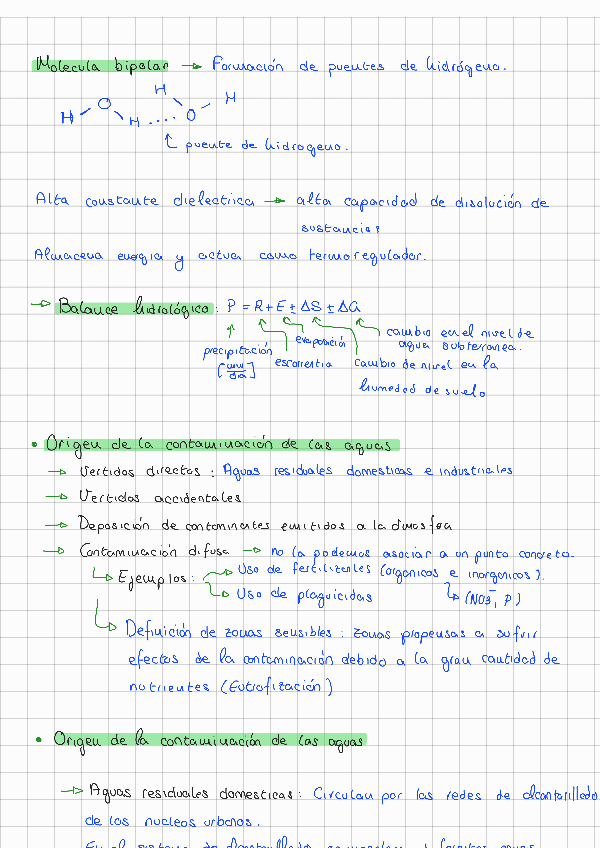 Molecula bipolar → Formación de puentes de hidrógeno.
H O H .... O H H
puente de hidrogeno.
Alta constante dielectrica → alta capacidad de disolución de
sustancias
Almacena energia y actua como termoregulador.
→ Balance hidrológico: P = R + E ± ΔS ± ΔG
precipitación [mm/dia]
escorrentia
evaporación
cambio de nivel en la
humedad de suelo
cambio en el nivel de
agua subterranea.
• Origen de la contaminación de las aguas
→ Vertidos directos : Aguas residuales domesticas e industriales
→ Vertidos accidentales
→ Deposición de contaminantes emitidos a la atmosfera
→ Contaminación difusa → no la podemos asociar a un punto concreto.
Ejemplos: → Uso de fertilizantes (organicos e inorganicos).
→ Uso de plaguicidas (NO3⁻, P)
Definición de zonas sensibles : zonas propensas a sufrir
efectos de la contaminación debido a la gran cantidad de
nutrientes (Eutrofización)
• Origen de la contaminación de las aguas
→ Aguas residuales domesticas: Circulan por las redes de alcantarillado
de los nucleos urbanos.
En el sistema de alcantarillado